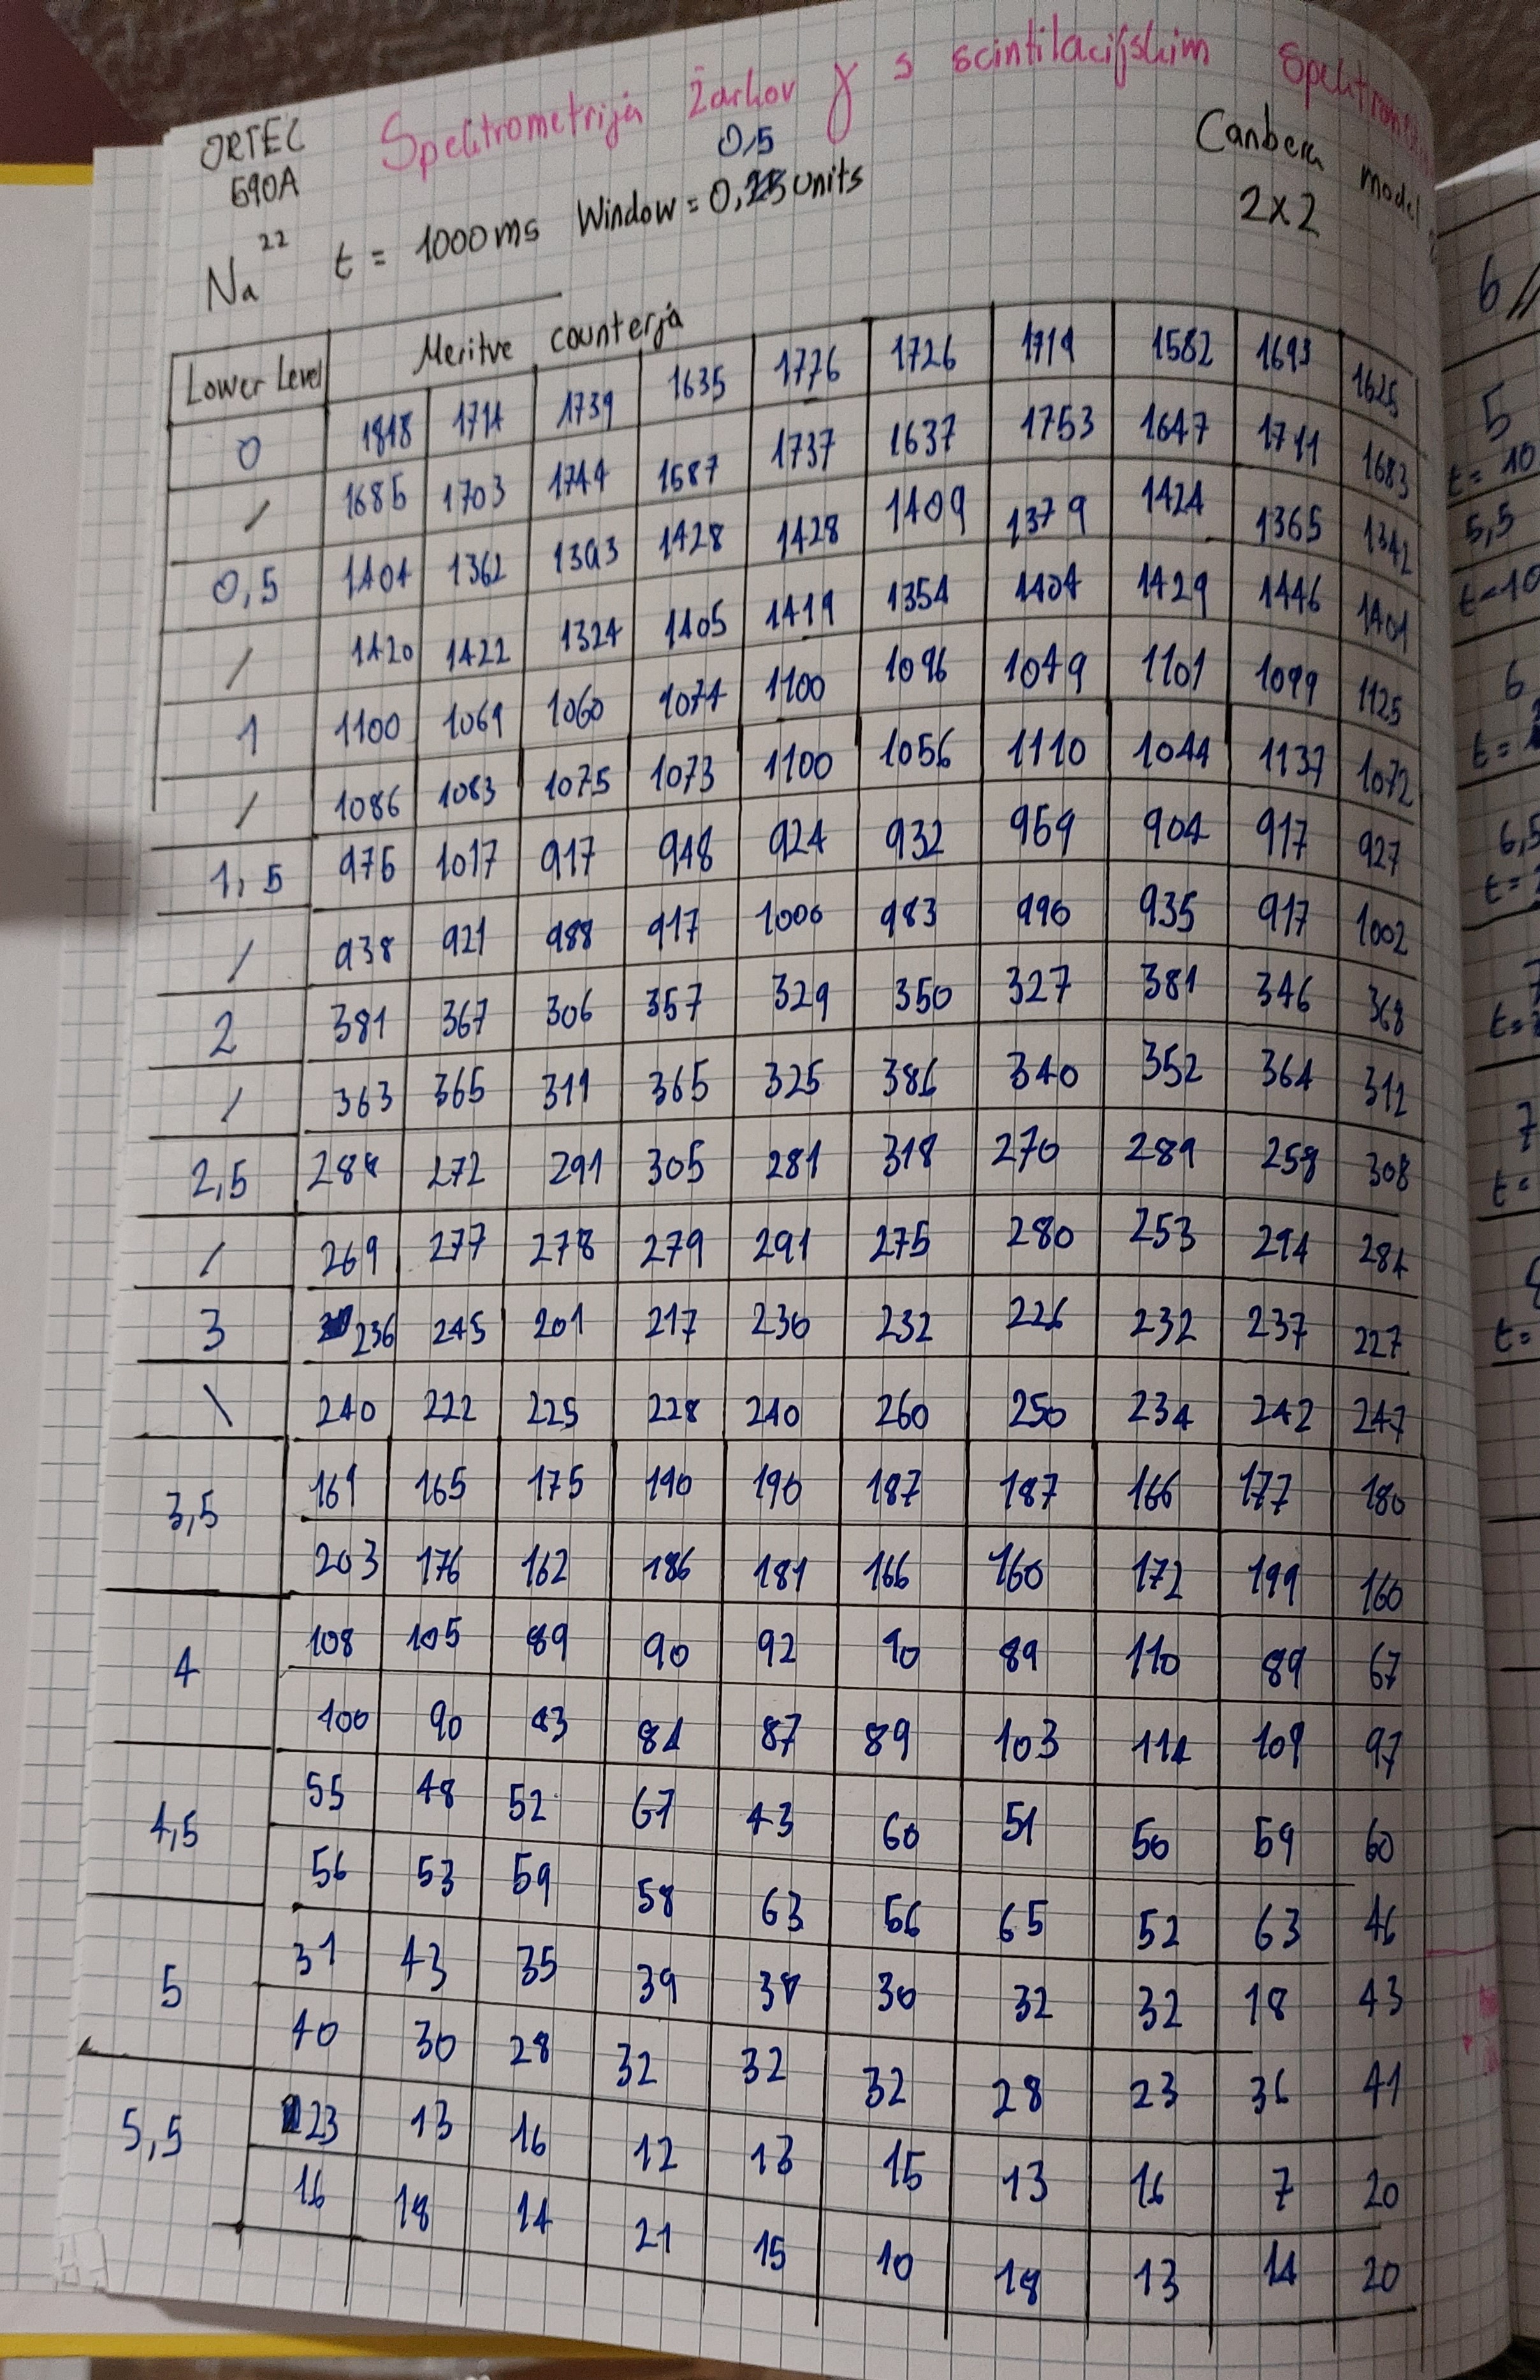 Spektrometrija žarkov γ s scintilacijskim
ORTEC
590A
Canberra model
2x2
0,5
Na 22 t = 1000ms Window = 0, units
Lower Level Meritve counterja
0 1848 1714 1739 1635 1776 1726 1719 1582 1693 1625
/ 1685 1703 1744 1587 1737 1637 1753 1647 1711 1683
0,5 1404 1362 1393 1428 1428 1409 1379 1424 1365 1342
/ 1420 1422 1324 1405 1419 1354 1404 1429 1446 1401
1 1100 1069 1060 1074 1100 1096 1049 1101 1099 1125
/ 1086 1083 1075 1073 1100 1056 1110 1044 1137 1072
1,5 975 1017 917 948 924 932 969 904 917 927
/ 938 921 988 917 1006 983 990 935 917 1002
2 381 367 306 357 329 350 327 381 346 368
/ 363 365 311 365 325 386 340 352 364 312
2,5 284 272 291 305 281 318 270 289 259 308
/ 269 277 278 279 291 275 280 253 294 284
3 236 245 201 217 230 232 226 232 237 227
\ 240 222 225 228 240 260 250 234 242 247
3,5 169 165 175 190 190 187 187 166 177 180
203 176 162 186 181 166 160 172 199 160
4 108 105 89 90 92 90 89 110 89 67
100 90 83 84 87 89 103 114 109 97
4,5 55 48 52 67 43 60 51 50 59 60
56 53 59 58 63 56 65 52 63 46
5 31 43 35 39 30 32 32 18 43
40 30 28 32 32 32 28 23 36 41
5,5 23 13 16 12 13 15 13 16 7 20
16 18 14 21 15 10 18 13 14 20
6
5
t= 10
5,5
t=10
6
t=
6,5
t=
7
t=
7
t=
t=